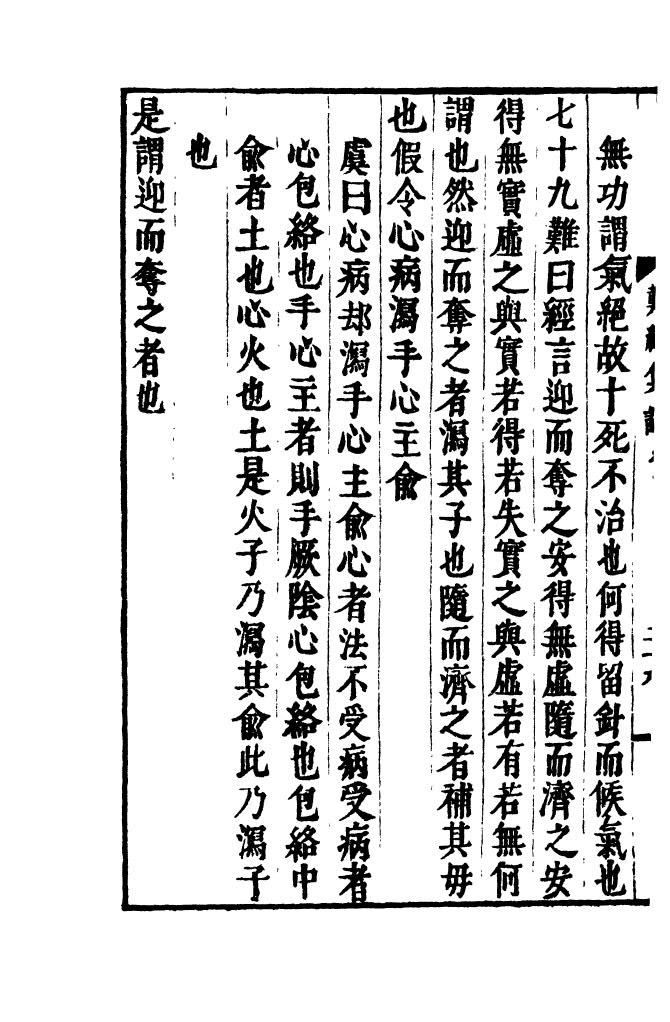 無功謂氣絕故十死不治也何得留針而候氣也
七十九難曰經言迎而奪之安得無虛隨而濟之安
得無實虛之與實若得若失實之與虛若有若無何
謂也然迎而奪之者瀉其子也隨而濟之者補其毋
也假令心病瀉手心主俞
虞曰心病却瀉手心主俞心者法不受病受病者
心包絡也手心主者則手厥陰心包絡也包絡中
俞者土也心火也土是火子乃瀉其俞此乃瀉子
也
是謂迎而奪之者也